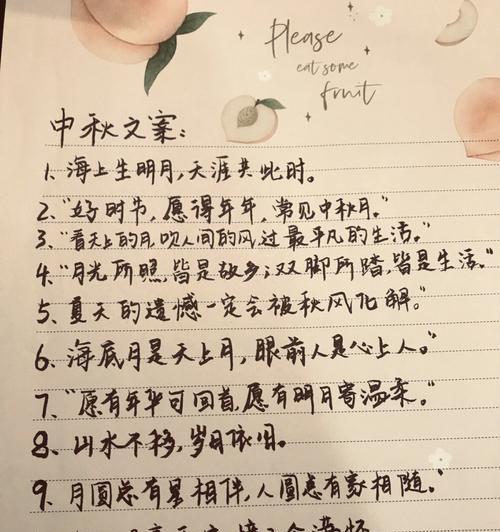 Please
eat some
fruit
中秋文案:
1、海上生明月,天涯共此时。
2、"好时节,愿得年年,常见中秋月。"
3、"看天上的月,吹人间的风,过最平凡的生活。"
4、"月光所照,皆是故乡;双脚所踏,皆是生活。"
5、夏天的遗憾一定会被秋风化解。"
6、海底月是天上月,眼前人是心上人。"
7、"愿有年华可回首,愿有明月寄温柔。"
8、山水不移,岁月依旧。
9、月圆总有星相伴,人圆总有家相随。"